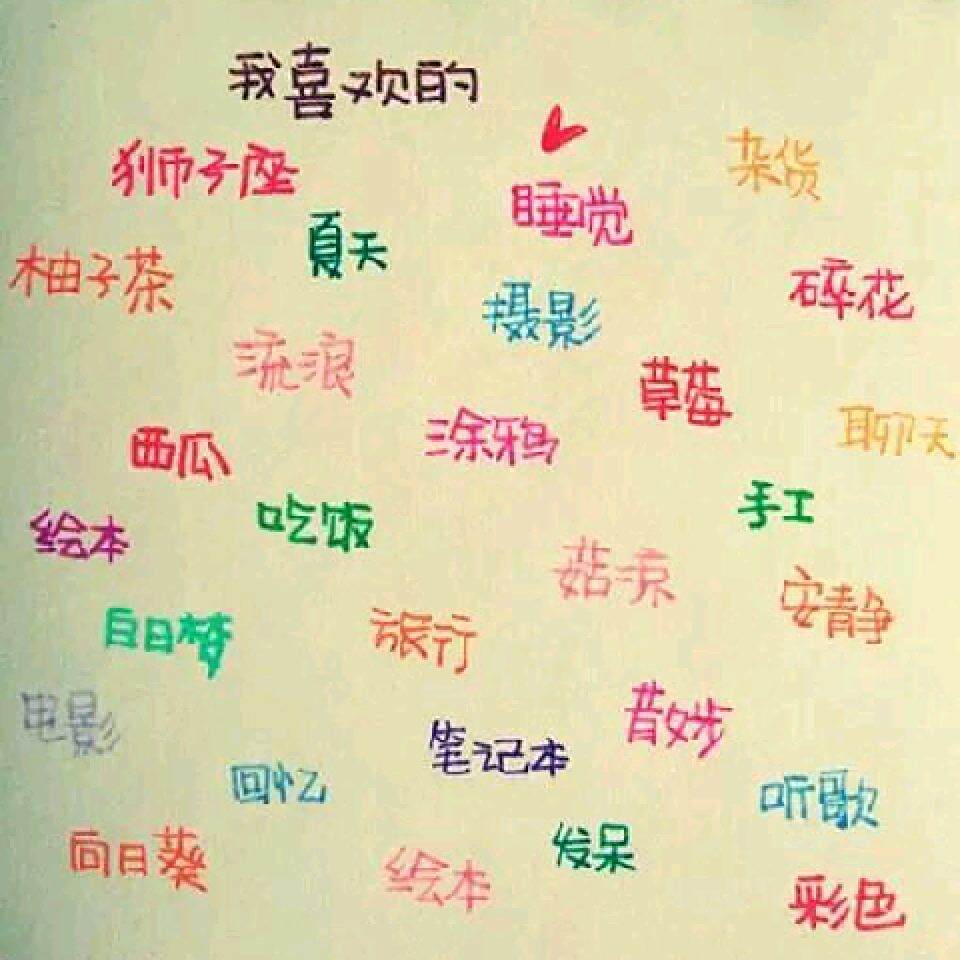 我喜欢的
狮子座
睡觉
杂货
夏天
柚子茶
摄影
碎花
流浪
草莓
涂鸦
聊天
西瓜
吃饭
手工
绘本
菇凉
安静
白日梦
旅行
电影
散步
笔记本
回忆
听歌
向日葵
发呆
绘本
彩色